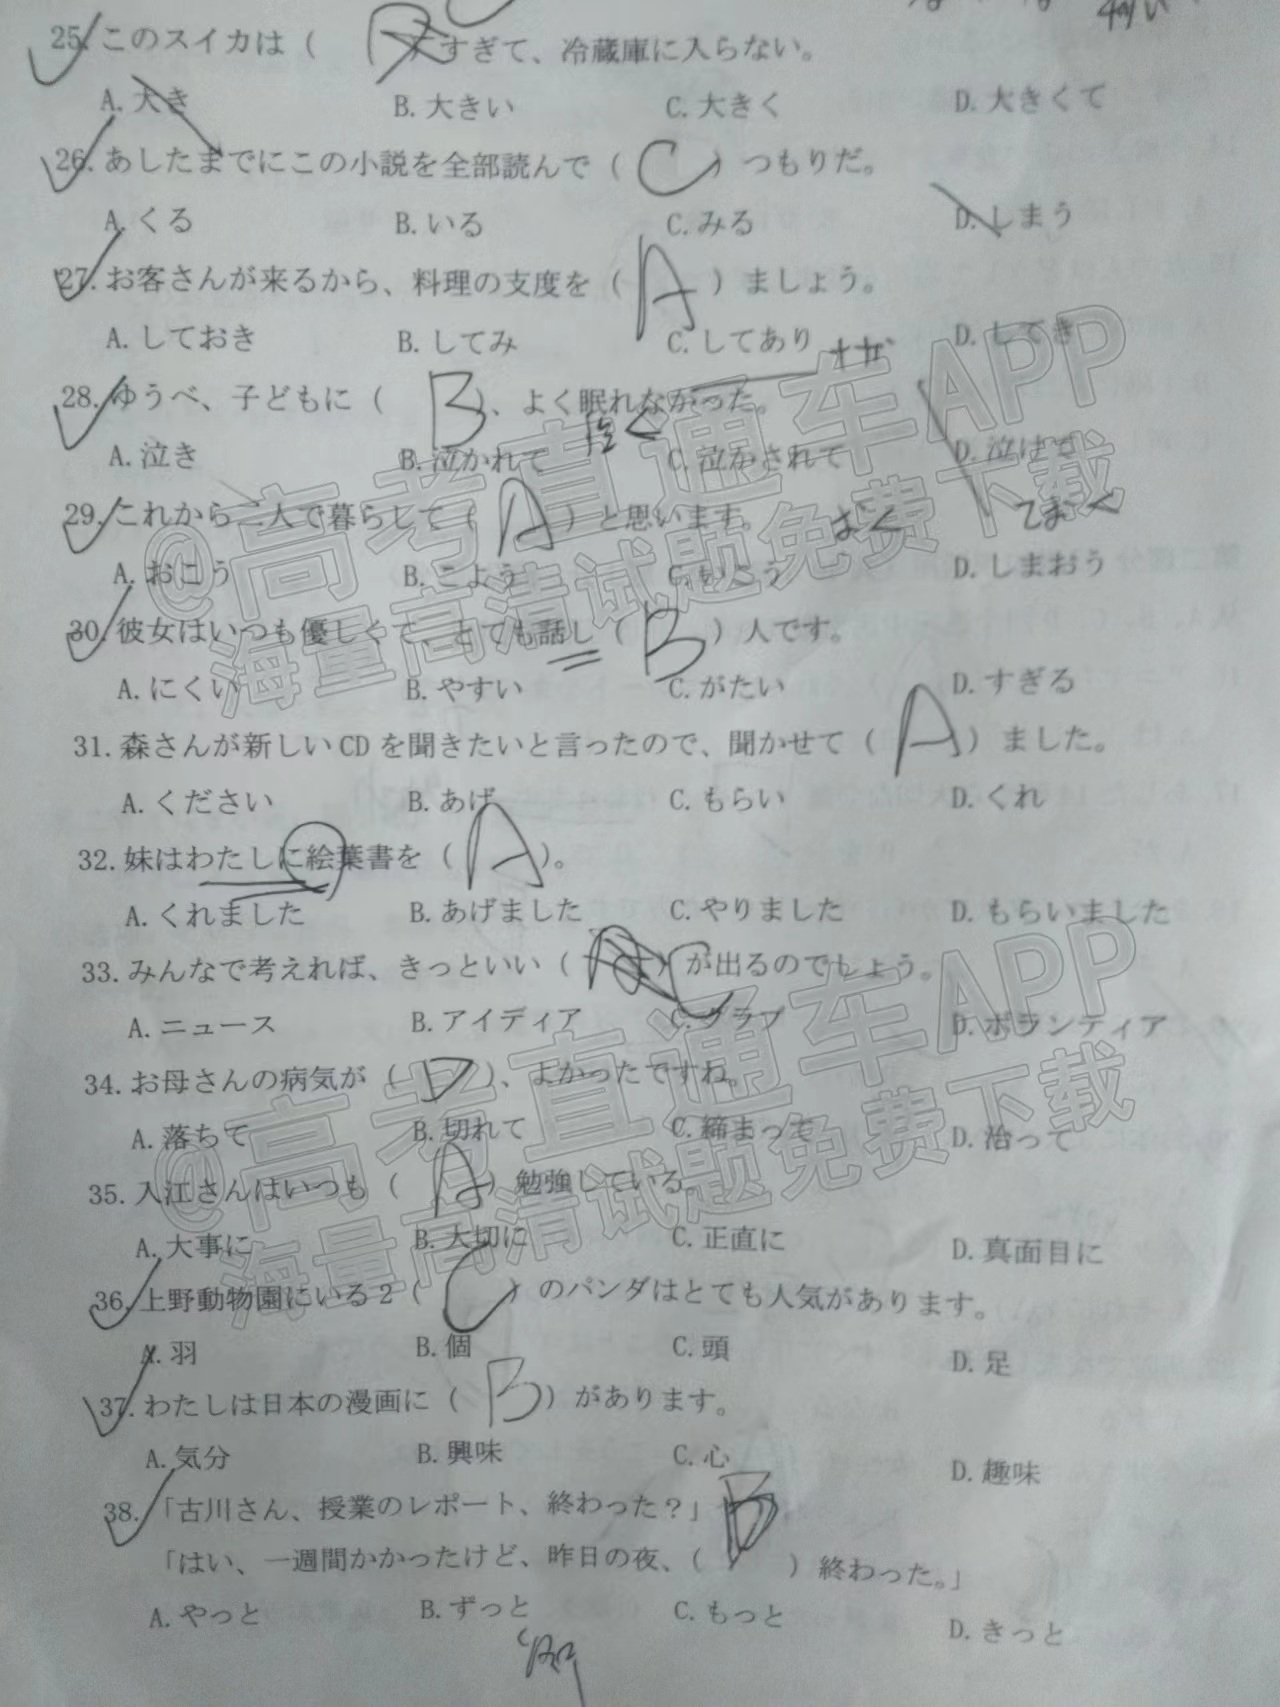 25.このスイカは（　）すぎて、冷蔵庫に入らない。
A.大き　B.大きい　C.大きく　D.大きくて
26.あしたまでにこの小説を全部読んで（C）つもりだ。
A.くる　B.いる　C.みる　D.しまう
27.お客さんが来るから、料理の支度を（A）ましょう。
A.しておき　B.してみ　C.してあり　D.してき
28.ゆうべ、子どもに（B）、よく眠れなかった。
A.泣き　B.泣かれて　C.泣かされて　D.泣けて
29.これから二人で暮らして（A）と思います。
A.おこう　B.こよう　C.いこう　D.しまおう
30.彼女はいつも優しくて、とても話し（B）人です。
A.にくい　B.やすい　C.がたい　D.すぎる
31.森さんが新しいCDを聞きたいと言ったので、聞かせて（A）ました。
A.ください　B.あげ　C.もらい　D.くれ
32.妹はわたしに絵葉書を（A）。
A.くれました　B.あげました　C.やりました　D.もらいました
33.みんなで考えれば、きっといい（C）が出るのでしょう。
A.ニュース　B.アイディア　C.クラブ　D.ボランティア
34.お母さんの病気が（D）、よかったですね。
A.落ちて　B.切れて　C.締まって　D.治って
35.入江さんはいつも（A）勉強している。
A.大事に　B.大切に　C.正直に　D.真面目に
36.上野動物園にいる2（C）のパンダはとても人気があります。
A.羽　B.個　C.頭　D.足
37.わたしは日本の漫画に（B）があります。
A.気分　B.興味　C.心　D.趣味
38.「古川さん、授業のレポート、終わった？」 B
「はい、一週間かかったけど、昨日の夜、（　）終わった。」
A.やっと　B.ずっと　C.もっと　D.きっと
@高考直通车APP
海量高清试题免费下载
@高考直通车APP
海量高清试题免费下载